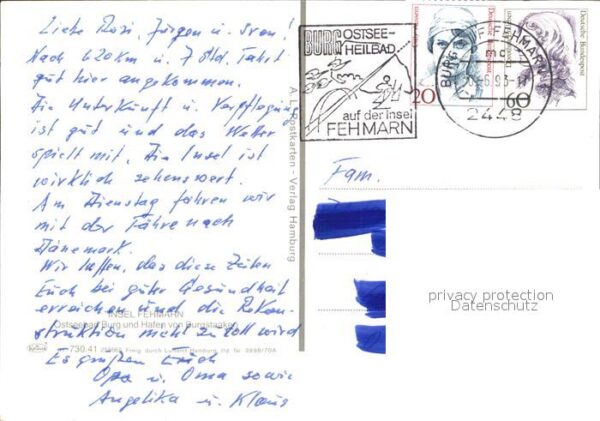 Liebe Rosi, Jürgen u. Sven!
Nach 620 km u. 7 Std. Fahrt
gut hier angekommen.
Die Unterkunft u. Verpflegung
ist gut und das Wetter
spielt mit. Die Insel ist
wirklich sehenswert.
Am Dienstag fahren wir
mit der Fähre nach
Dänemark.
Wir hoffen, das diese Zeilen
Euch bei guter Gesundheit
erreichen und die Rekon-
struktion nicht zu toll wird
Es grüßen Euch
Opa u. Oma sowie
Angelika u. Klaus
INSEL FEHMARN
Ostseebad Burg und Hafen von Burgstaaken
730.41
Freig. durch Luftamt Hamburg
A. L. Postkarten - Verlag Hamburg
BURG OSTSEE-
HEILBAD
auf der Insel
FEHMARN
BURG FEHMARN
6.93
2448
20
60
Deutsche Bundespost
Fam.
privacy protection
Datenschutz